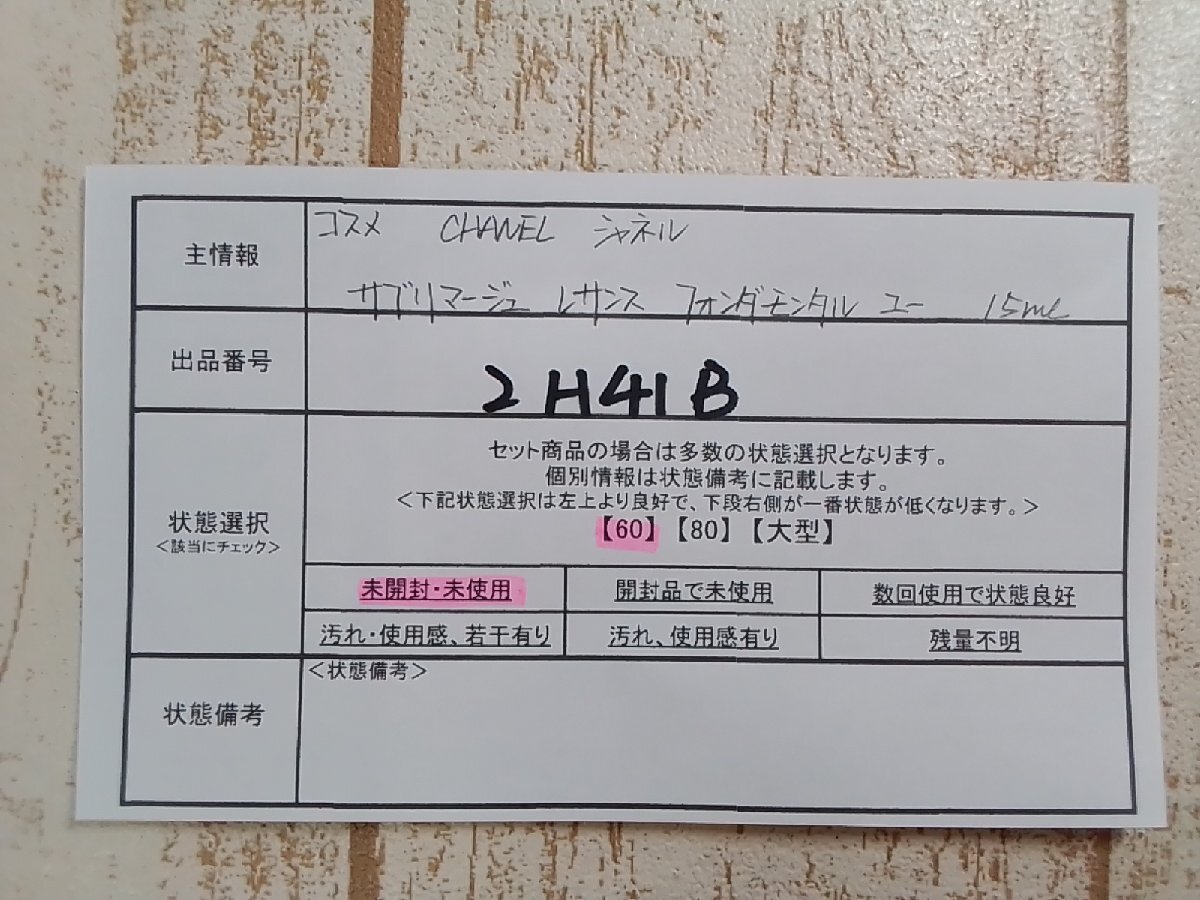 主情報
コスメ CHANEL シャネル
サブリマージュ レサンス フォンダモンタル ユー 15ml
出品番号
2H41B
セット商品の場合は多数の状態選択となります。
個別情報は状態備考に記載します。
＜下記状態選択は左上より良好で、下段右側が一番状態が低くなります。＞
【60】【80】【大型】
状態選択
＜該当にチェック＞
未開封・未使用 開封品で未使用 数回使用で状態良好
汚れ・使用感、若干有り 汚れ、使用感有り 残量不明
状態備考
＜状態備考＞